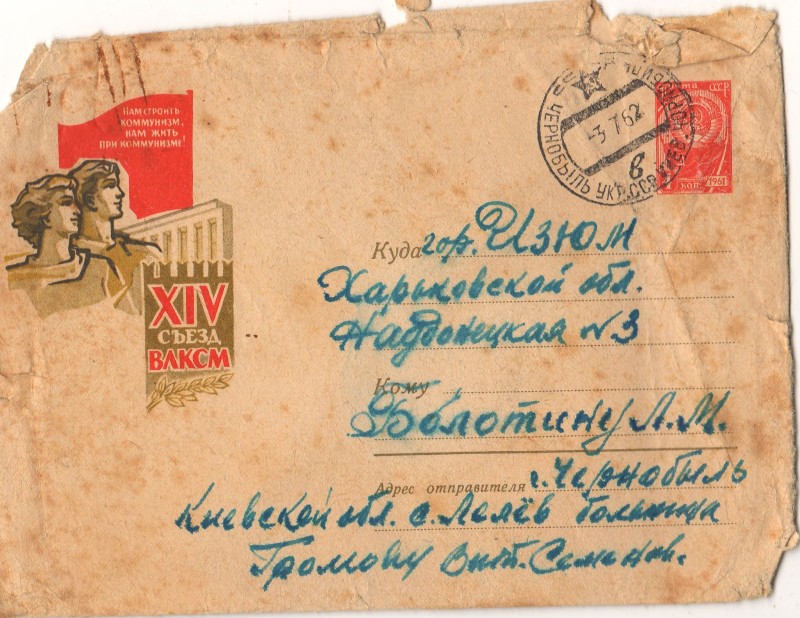 НАМ СТРОИТЬ
КОММУНИЗМ,
НАМ ЖИТЬ
ПРИ КОММУНИЗМЕ!
XIV
СЪЕЗД
ВЛКСМ
ЧЕРНОБЫЛЬ УКР. ССР КИЕВ.
-3 7 62
в
Почта СССР
КОП. 1961
Куда гор. ИЗЮМ
Харьковской обл.
Наддонецкая №3
Кому
Болотину Л. М.
Адрес отправителя г. Чернобыль
Киевской обл. с. Лелёв больница
Громову Вит. Семенов.